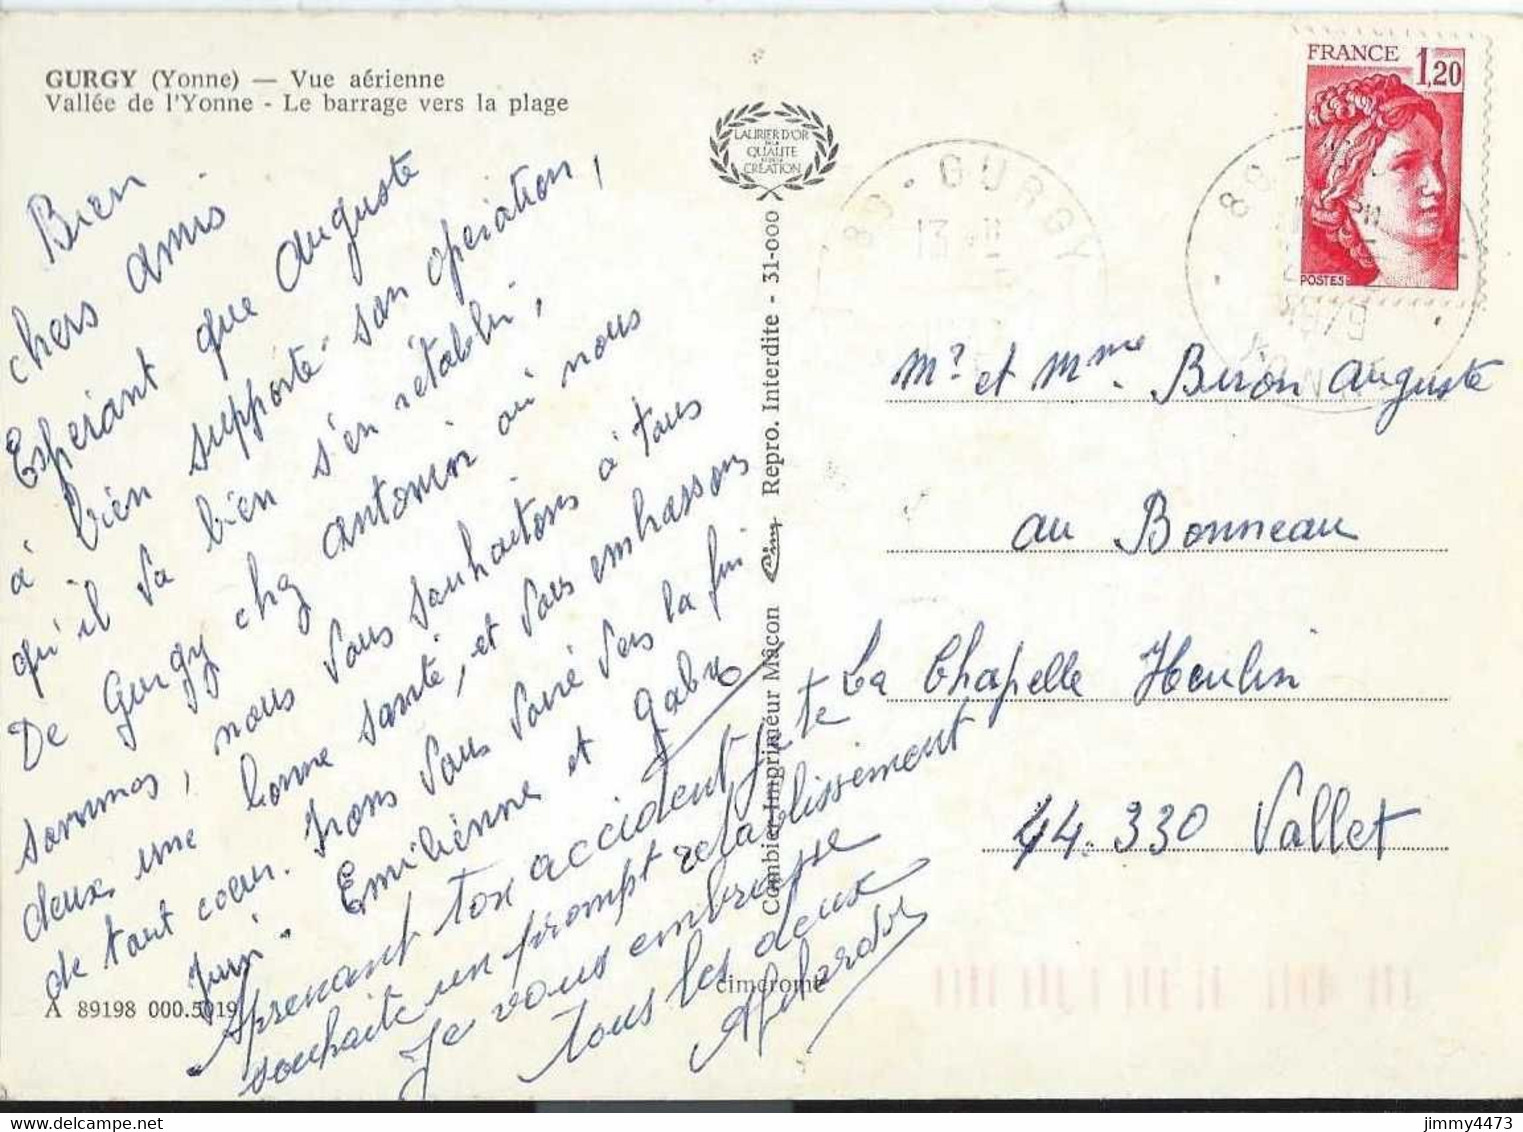 GURGY (Yonne) — Vue aérienne
Vallée de l'Yonne - Le barrage vers la plage
Bien
chers amis
Espérant que auguste
à bien supporté son opération,
qu'il va bien s'en rétablir,
De Gurgy chez antonin où nous
sommes, nous vous souhaitons à tous
deux une bonne santé, et vous embrassons
de tout coeur. Irons vous voir vers la fin
Juin. Emilienne et Gabre
Aprenant ton accident je te
souhaite un prompt retablissement
Je vous embrasse
tous les deux
A 89198 000.5019
cimcrome
LAURIER D'OR
DE LA
QUALITE
CREATION
Combier Imprimeur Mâcon Cim Repro. Interdite - 31-000
89 - GURGY
13
89
1979
YONNE
FRANCE 1,20
POSTES
Mr et Mme Biron auguste
au Bonneau
La Chapelle Heulin
44.330 Vallet
jimmy4473 - delcampe.net